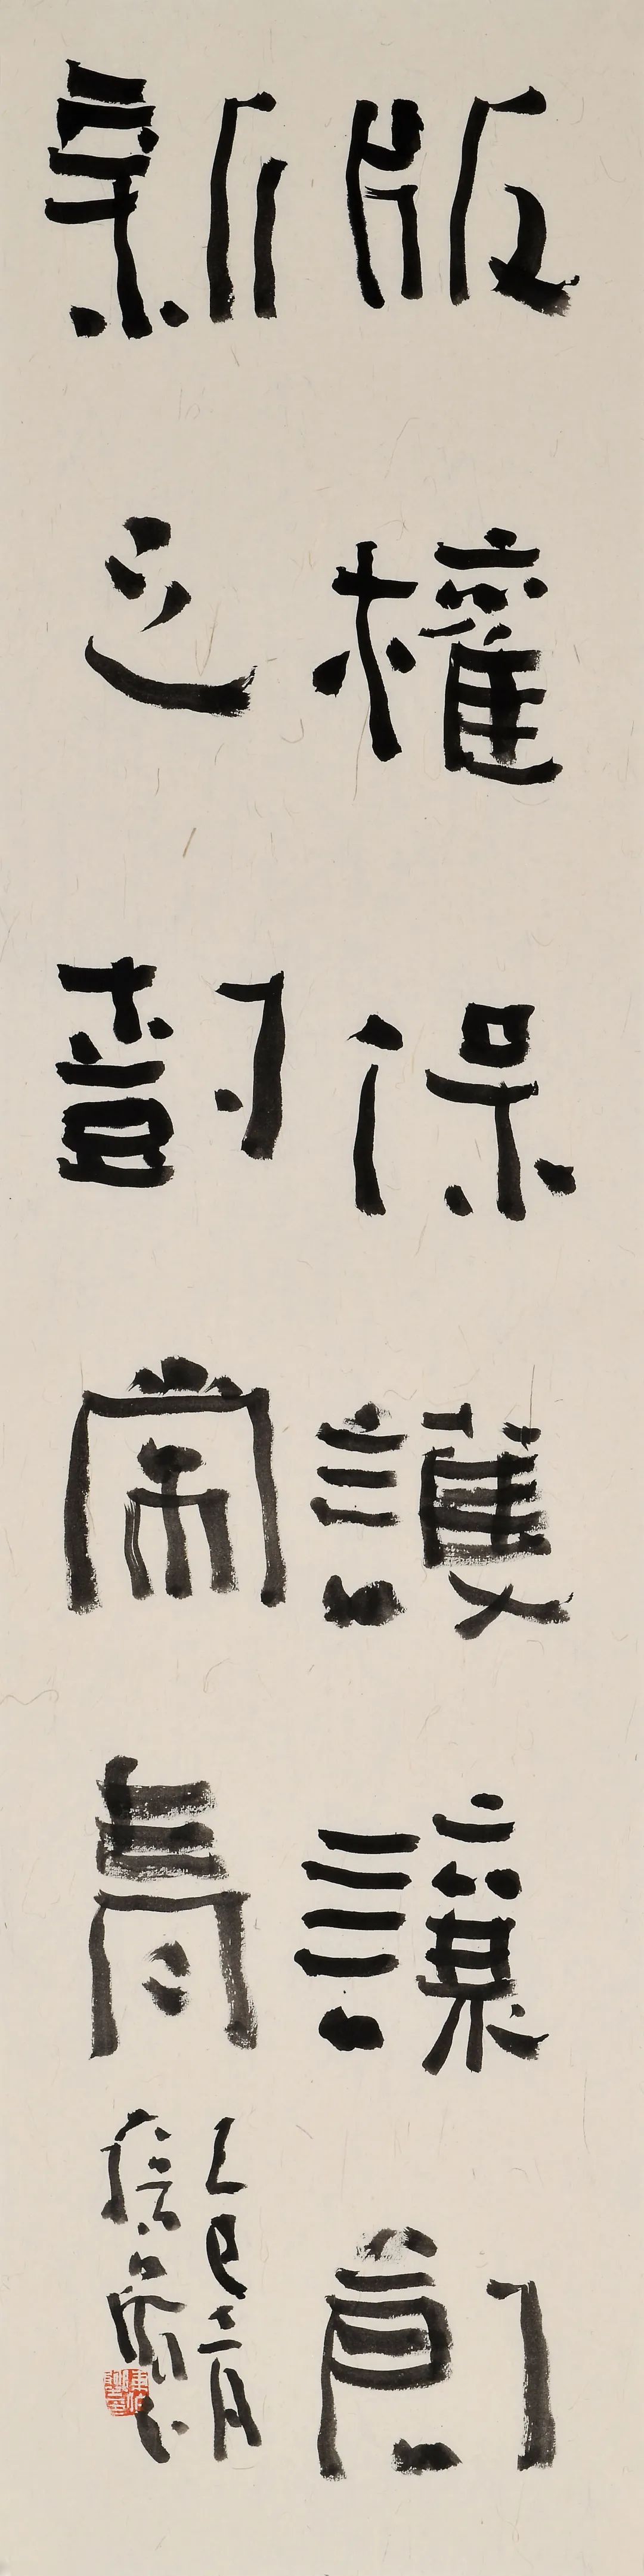 版權保護讓創
新之樹常青
乙巳三月